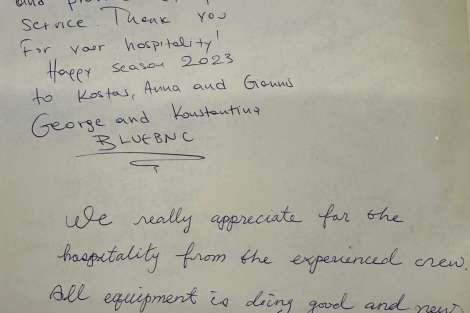 and
service. Thank you
For your hospitality!
Happy season 2023
to Kostas, Anna and Giannis
George and Konstantina
BLUEBNC
We really appreciate for the
hospitality from the experienced crew.
All equipment is doing good and new